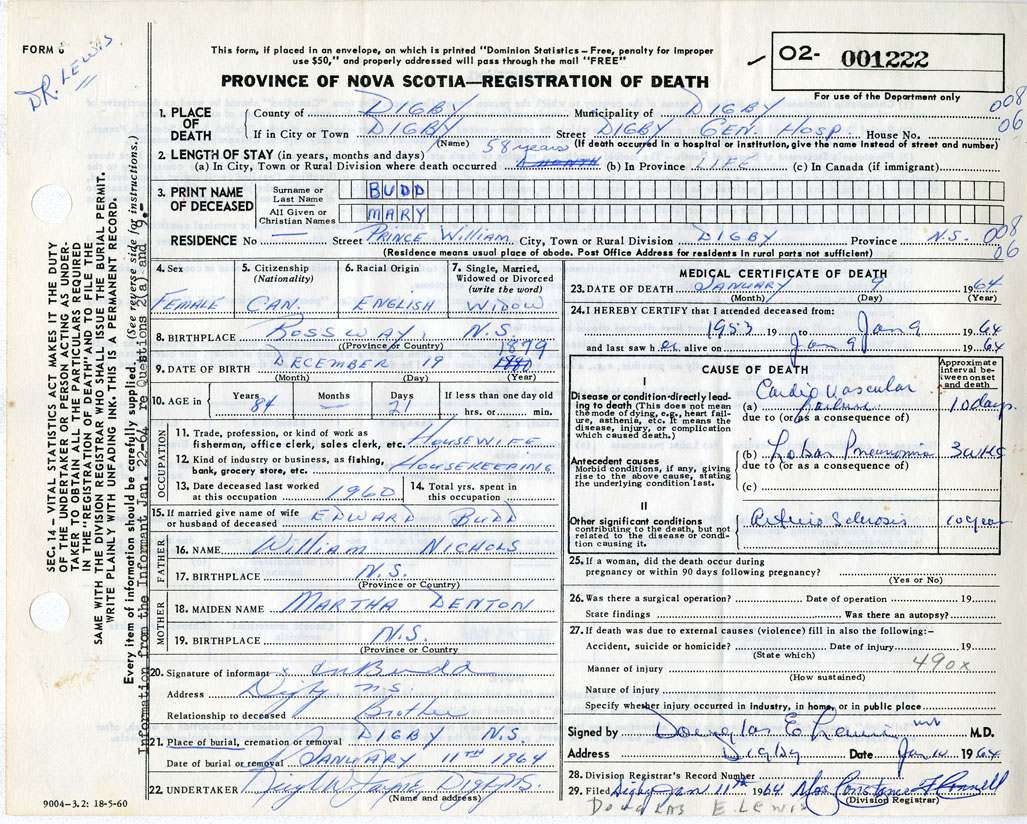 FORM 6
DR. LEWIS
This form, if placed in an envelope, on which is printed "Dominion Statistics – Free, penalty for improper
use $50," and properly addressed will pass through the mail "FREE"
PROVINCE OF NOVA SCOTIA—REGISTRATION OF DEATH
02- 001222
For use of the Department only
008
06
1. PLACE OF DEATH
County of DIGBY Municipality of DIGBY
If in City or Town DIGBY Street DIGBY GEN. HOSP. House No.
(Name) (If death occurred in a hospital or institution, give the name instead of street and number)
2. LENGTH OF STAY (in years, months and days)
58 years
(a) In City, Town or Rural Division where death occurred (b) In Province LIFE (c) In Canada (if immigrant)
3. PRINT NAME OF DECEASED
Surname or Last Name BUDD
All Given or Christian Names MARY
RESIDENCE No — Street PRINCE WILLIAM City, Town or Rural Division DIGBY Province N.S. 008
06
(Residence means usual place of abode. Post Office Address for residents in rural parts not sufficient)
4. Sex FEMALE
5. Citizenship (Nationality) CAN.
6. Racial Origin ENGLISH
7. Single, Married, Widowed or Divorced (write the word) WIDOW
8. BIRTHPLACE ROSSWAY, N.S.
(Province or Country)
1879
9. DATE OF BIRTH DECEMBER 19 1880
(Month) (Day) (Year)
10. AGE in Years 84 Months — Days 21 If less than one day old hrs. or min.
OCCUPATION
11. Trade, profession, or kind of work as fisherman, office clerk, sales clerk, etc. HOUSEWIFE
12. Kind of industry or business, as fishing, bank, grocery store, etc. HOUSEKEEPING
13. Date deceased last worked at this occupation 1960
14. Total yrs. spent in this occupation
15. If married give name of wife or husband of deceased EDWARD BUDD
FATHER
16. NAME WILLIAM NICHOLS
17. BIRTHPLACE N.S.
(Province or Country)
MOTHER
18. MAIDEN NAME MARTHA DENTON
19. BIRTHPLACE N.S.
(Province or Country
20. Signature of informant x Budd
Address Digby N.S.
Relationship to deceased Brother
21. Place of burial, cremation or removal DIGBY N.S.
Date of burial or removal JANUARY 11TH 1964
22. UNDERTAKER
(Name and address)
9004–3.2: 18-5-60
MEDICAL CERTIFICATE OF DEATH
23. DATE OF DEATH JANUARY 9 1964
(Month) (Day) (Year)
24. I HEREBY CERTIFY that I attended deceased from:
1953 19 to Jan 9 1964
and last saw her alive on Jan 9 1964
CAUSE OF DEATH
Approximate interval between onset and death
I
Disease or condition directly leading to death (This does not mean the mode of dying, e.g., heart failure, asthenia, etc. It means the disease, injury, or complication which caused death.)
(a) Cardio Vascular failure 10 days
due to (or as a consequence of)
Antecedent causes
Morbid conditions, if any, giving rise to the above cause, stating the underlying condition last.
(b) Lobar Pneumonia 3 wks
due to (or as a consequence of)
(c)
II
Other significant conditions
contributing to the death, but not related to the disease or condition causing it.
Arterio Sclerosis 10 years
25. If a woman, did the death occur during pregnancy or within 90 days following pregnancy?
(Yes or No)
26. Was there a surgical operation? Date of operation 19
State findings Was there an autopsy?
27. If death was due to external causes (violence) fill in also the following:–
Accident, suicide or homicide? Date of injury 19
(State which)
490x
Manner of injury
(How sustained)
Nature of injury
Specify whether injury occurred in industry, in home, or in public place
Signed by Douglas E Lewis MD M.D.
Address Digby Date Jan 14 1964
28. Division Registrar's Record Number
29. Filed Digby Jan 11th 1964 Mrs. Constance
(Division Registrar)
Douglas E. Lewis
SEC. 14 – VITAL STATISTICS ACT MAKES IT THE DUTY
OF THE UNDERTAKER OR PERSON ACTING AS UNDER-
TAKER TO OBTAIN ALL THE PARTICULARS REQUIRED
IN THE "REGISTRATION OF DEATH" AND TO FILE THE
SAME WITH THE DIVISION REGISTRAR WHO SHALL ISSUE THE BURIAL PERMIT.
WRITE PLAINLY WITH UNFADING INK. THIS IS A PERMANENT RECORD.
Every item of information should be carefully supplied. (See reverse side for instructions.)
Information from the Informant Jan. 22-64 re Questions 2(a) and 9.-